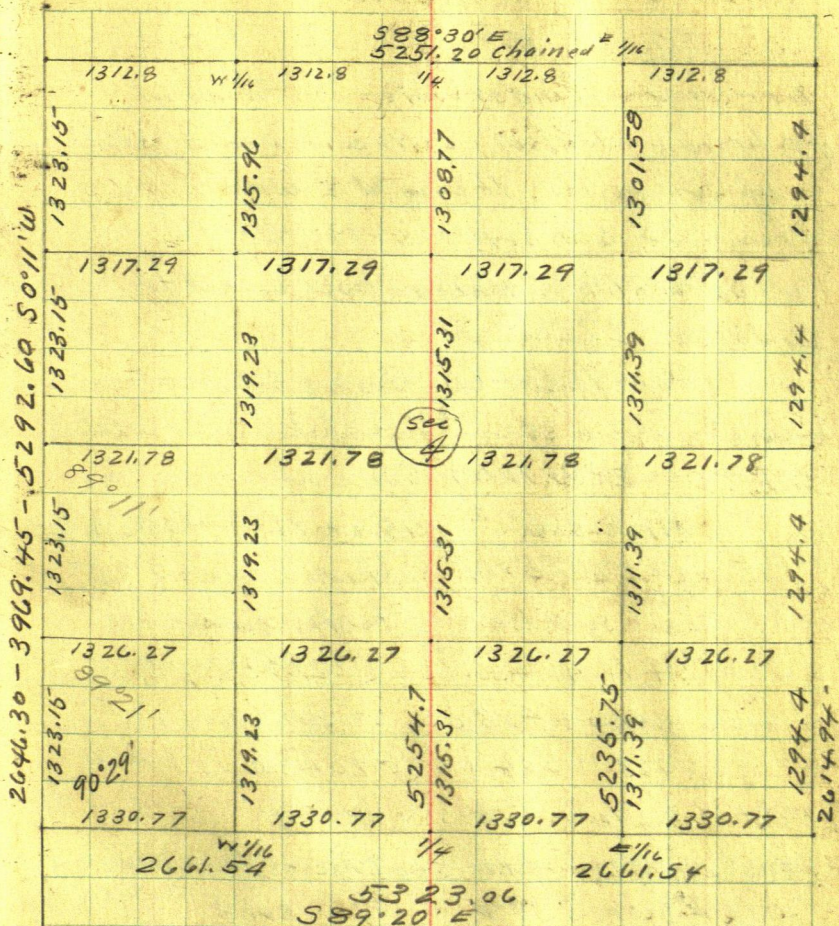 S 88°30' E
5251.20 Chained E 1/16
1312.8 W 1/16 1312.8 1/4 1312.8 1312.8
1323.15 1315.96 1308.77 1301.58 1294.4
1317.29 1317.29 1317.29 1317.29
1323.15 1319.23 1315.31 1311.39 1294.4
Sec
4
1321.78 1321.78 1321.78 1321.78
89°11'
1323.15 1319.23 1315.31 1311.39 1294.4
1326.27 1326.27 1326.27 1326.27
89°21'
1323.15 1319.23 5254.7 1315.31 5235.75 1311.39 1294.4
90°29'
1330.77 1330.77 1330.77 1330.77
W 1/16 1/4 E 1/16
2661.54 2661.54
5323.06
S 89°20' E
2646.30 - 3969.45 - 5292.60 S0°11'W
2614.94 -